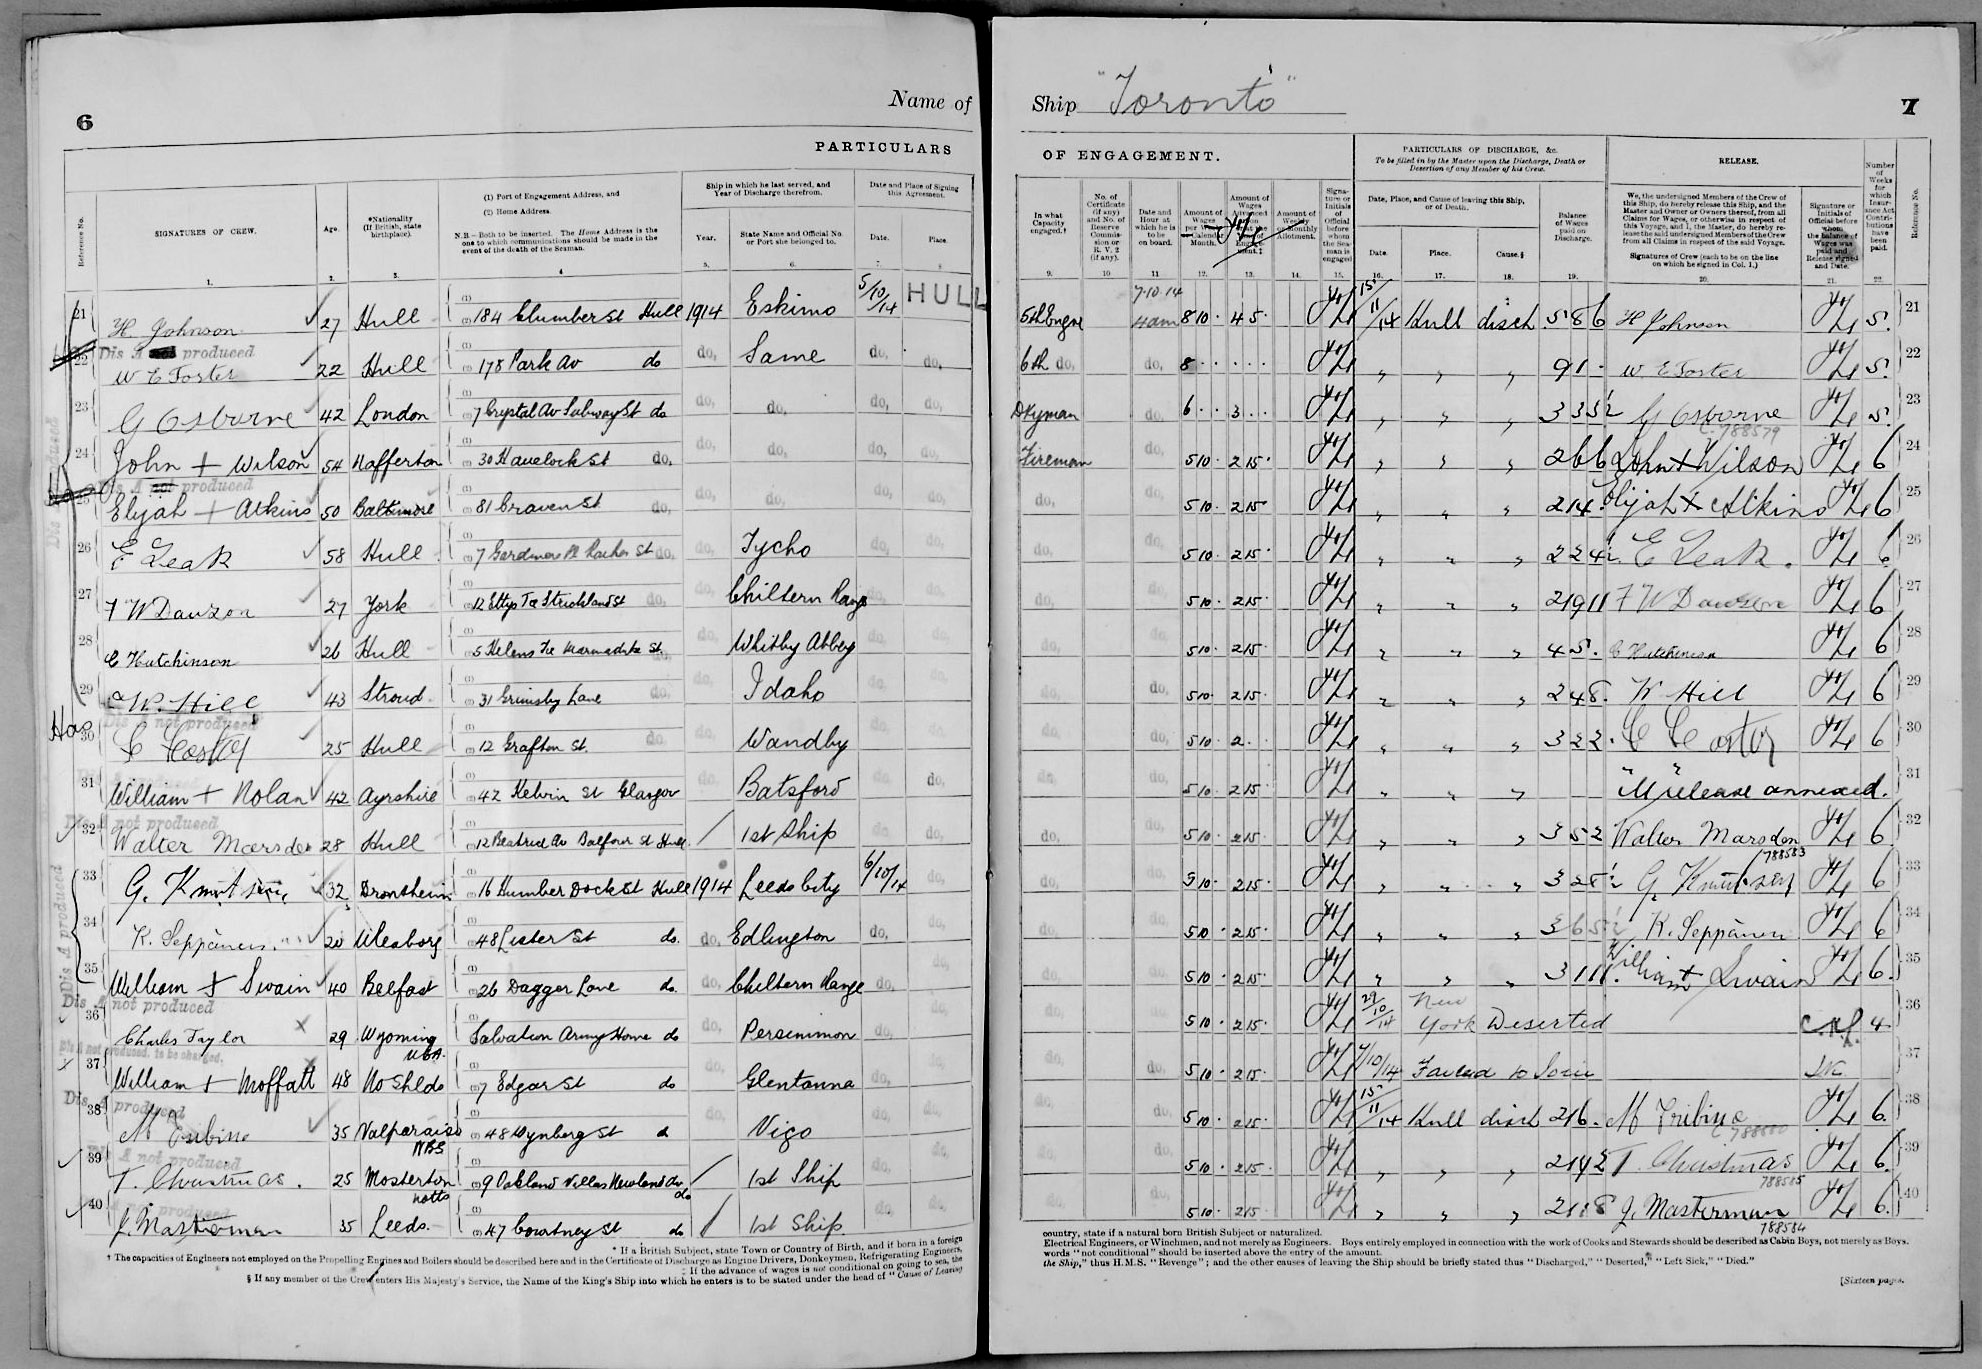 6
Name of
PARTICULARS
Reference No.
SIGNATURES OF CREW.
Age.
*Nationality (If British, state birthplace).
(1) Port of Engagement Address, and
(2) Home Address.
N.B.—Both to be inserted. The Home Address is the one to which communications should be made in the event of the death of the Seaman.
Ship in which he last served, and Year of Discharge therefrom.
Year.
State Name and Official No. or Port she belonged to.
Date and Place of Signing this Agreement.
Date.
Place.
1. 2. 3. 4 5. 6. 7. 8
21 H Johnson 27 Hull 184 Clumber St Hull 1914 Eskimo 5/10/14 HULL
Dis A not produced
22 W E Foster 22 Hull 178 Park Av do do, Same do, do,
23 G Osborne 42 London 7 Crystal Av Subway St do do, do, do, do,
24 John + Wilson 54 Nafferton 30 Havelock St do, do, do, do, do,
Dis A not produced
25 Elijah + Atkins 50 Baltimore 81 Craven St do, do, do, do, do,
26 E Leak 58 Hull 7 Gardners Pl St do, do, Tycho do, do,
27 F W Dawson 27 York 12 Ettys Tce Strickland St do, do, Chiltern Range do, do,
28 C Hutchinson 26 Hull 5 Helens Tce Marmaduke St. do, do, Whitby Abbey do,
29 W. Hill 43 Stroud 31 Grimsby Lane do, do, Idaho do, do,
Dis A not produced
30 C Coster 25 Hull 12 Grafton St. do, do, Wandby do, do,
31 William + Nolan 42 Ayrshire 42 Kelvin St Glasgow do, Batsford do, do,
Dis A not produced
32 Walter Marsden 28 Hull 12 Beatrice Av Balfour St Hull / 1st Ship do, do,
33 G. Knutsen 32 Drontheim 16 Humber Dock St Hull 1914 Leeds City 6/10/14 do,
34 K. Seppänen 20 Uleaborg 48 Lister St do. do, Edlington do, do,
35 William + Swain 40 Belfast 26 Dagger Lane do. do, Chiltern Range do, do,
Dis A not produced
36 Charles Taylor x 29 Wyoming USA Salvation Army Home do do, Persimmon do, do,
Dis A not produced, to be charged.
37 William + Moffatt 48 No Shlds 7 Edgar St do do, Glentanna do, do,
Dis A produced
38 M Tribine 35 Valparaiso NBS 48 Wynberg St do, Vigo do, do,
Dis A not produced
39 T. Christmas. 25 Mosterton notts 9 Oakland Villas Newland Av do / 1st Ship do, do,
40 J. Masterman 35 Leeds. 47 Courtney St do / 1st Ship. do, do,
* If a British Subject, state Town or Country of Birth, and if born in a foreign
† The capacities of Engineers not employed on the Propelling Engines and Boilers should be described here and in the Certificate of Discharge as Engine Drivers, Donkeymen, Refrigerating Engineers,
‡ If the advance of wages is not conditional on going to sea, the
§ If any member of the Crew enters His Majesty's Service, the Name of the King's Ship into which he enters is to be stated under the head of "Cause of Leaving
Ship "Toronto"
7
OF ENGAGEMENT.
PARTICULARS OF DISCHARGE, &c.
To be filled in by the Master upon the Discharge, Death or Desertion of any Member of his Crew.
RELEASE.
In what Capacity engaged.†
No. of Certificate (if any) and No. of Reserve Commission or R.V. 2 (if any).
Date and Hour at which he is to be on board.
Amount of Wages per Calendar Month.
Amount of Wages Advanced
Amount of Weekly or Monthly Allotment.
Signature or Initials of Official before whom the Seaman is engaged
Date, Place, and Cause of leaving this Ship, or of Death.
Date.
Place.
Cause.§
Balance of Wages paid on Discharge.
We, the undersigned Members of the Crew of this Ship, do hereby release this Ship, and the Master and Owner or Owners thereof, from all Claims for Wages, or otherwise in respect of this Voyage, and I, the Master, do hereby release the said undersigned Members of the Crew from all Claims in respect of the said Voyage.
Signatures of Crew (each to be on the line on which he signed in Col. 1.)
Signature or Initials of Official before whom the balance of Wages was paid and Release signed and Date.
Number of Weeks for which Insurance Act Contributions have been paid.
Reference No.
9. 10. 11 12. 13. 14. 15. 16. 17. 18. 19. 20. 21. 22.
5th Engr 7.10.14 4am 8 10 . 4 5 . 15/11/14 Hull disch 5 8 6 H Johnson 5. 21
6th do, do, 8 . . . . . " " " 9 1 . W. E Foster 5. 22
Dkyman do, 6 . . 3 . . " " " G Osborne 5. 23
C. 788579
Fireman do, 5 10 . 2 15 . " " " 2 6 6 John + Wilson 6 24
do, do, 5 10 . 2 15 . " " " 2 14 . Elijah + Atkins 6 25
do, do, 5 10 . 2 15 . " " " E Leak. 6 26
do, do, 5 10 . 2 15 . " " " 2 19 11 F W Dawson 6 27
do, do, 5 10 . 2 15 . " " " 4 5 . C Hutchinson 6 28
do, do, 5 10 . 2 15 . " " " 2 4 8. W Hill 6 29
do, do, 5 10 . 2 . " " " 3 2 2 . C Coster 6 30
do, do, 5 10 . 2 15 . " " " M release annexed. 31
do, do, 5 10 . 2 15 . " " " 3 5 2 Walter Marsden 6. 32
788583
do, do, 5 10 . 2 15 . " " " G. Knutsen 6 33
do, do, 5 10 . 2 15 . " " " K. Seppänen 6 34
do, do, 5 10 . 2 15 . " " " 3 1 11. William + Swain 6. 35
do, do, 5 10 . 2 15 . 29/10/14 New York Deserted 4. 36
do, do, 5 10 . 2 15 . 7/10/14 Failed to Join 37
do, do, 5 10 . 2 15 . 15/11/14 Hull disch 2 16 . M Tribine 6. 38
do, do, 5 10 . 2 15 . " " " 2 14 2 T. Christmas 6. 39
788585
do, do, 5 10 . 2 15 . " " " 2 11 8 J. Masterman 6. 40
788584
country, state if a natural born British Subject or naturalized.
Electrical Engineers, or Winchmen, and not merely as Engineers. Boys entirely employed in connection with the work of Cooks and Stewards should be described as Cabin Boys, not merely as Boys.
words "not conditional" should be inserted above the entry of the amount.
the Ship," thus H.M.S. "Revenge"; and the other causes of leaving the Ship should be briefly stated thus "Discharged," "Deserted," "Left Sick," "Died."
[Sixteen pages.